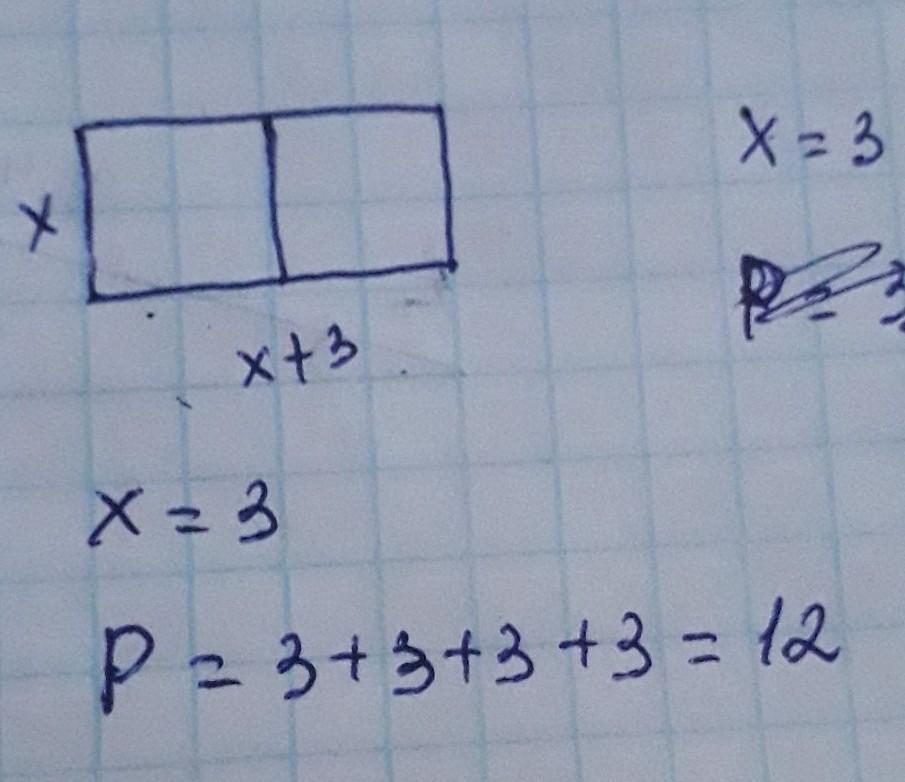 x = 3
x
x + 3
x = 3
P = 3 + 3 + 3 + 3 = 12